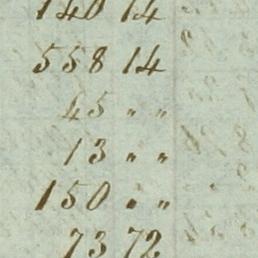 140 14
558 14
45 " "
13 " "
150 " "
73 72